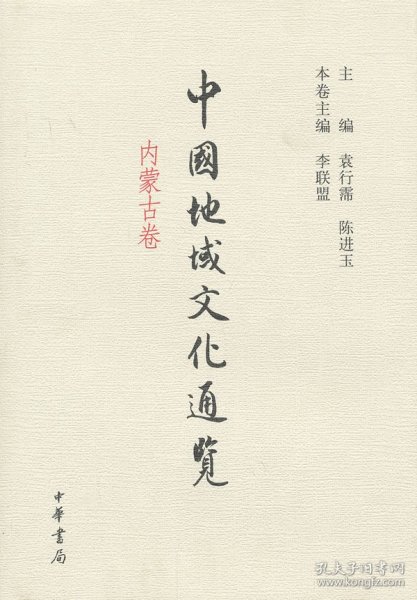 主 编 袁行霈 陈进玉
本卷主编 李联盟
中國地域文化通覽
内蒙古卷
中華書局
孔夫子旧书网
www.kongfz.com